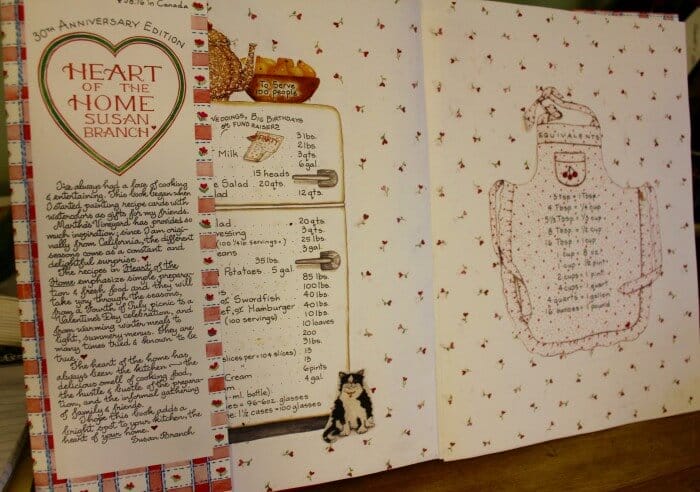 $38.16 in Canada
30TH ANNIVERSARY EDITION
HEART
OF THE
HOME
SUSAN
BRANCH
I've always had a love of cooking
& entertaining. This book began when
I started painting recipe cards with
watercolors as gifts for my friends.
Martha's Vineyard has provided so
much inspiration; since I am origi-
nally from California, the different
seasons come as a constant and
delightful surprise.
The recipes in Heart of the
Home emphasize simple prepara-
tion & fresh food and they will
take you through the seasons,
from a Fourth of July picnic to a
Valentine's Day celebration, and
from warming winter meals to
light, summery menus. They are
many times tried & known to be
true.
The heart of the home has
always been the kitchen — the
delicious smell of cooking food,
the hustle & bustle of the prepara-
tion, and the informal gathering
of family & friends.
I hope this book adds a
bright spot to your kitchen, the
heart of your home.
Susan Branch
To Serve
100 people
WEDDINGS, BIG BIRTHDAYS
or FUNDRAISERS
PARTY
3 lbs.
2 lbs.
Milk 3 qts.
6 gal.
15 heads
Salad 20 qts.
12 qts.
20 qts.
3 qts.
(100 ½ lb servings) 25 lbs.
3 gal.
35 lbs.
Potatoes 5 gal.
85 lbs.
100 lbs.
of Swordfish 40 lbs.
of Hamburger 40 lbs.
(100 servings) 10 lbs.
10 loaves
200
3 lbs.
slices per = 104 slices) 13
13
Cream 6 pints
4 gal.
ml. bottle):
= 96-6oz. glasses
1½ cases = 100 glasses
EQUIVALENTS
3 tsp. = 1 Tbsp.
4 Tbsp. = ¼ cup
5⅓ Tbsp. = ⅓ cup
8 Tbsp. = ½ cup
16 Tbsp. = 1 cup
1 cup = 8 oz.
2 cups = 1 pint
4 cups = 1 quart
4 quarts = 1 gallon
16 ounces = 1 pound